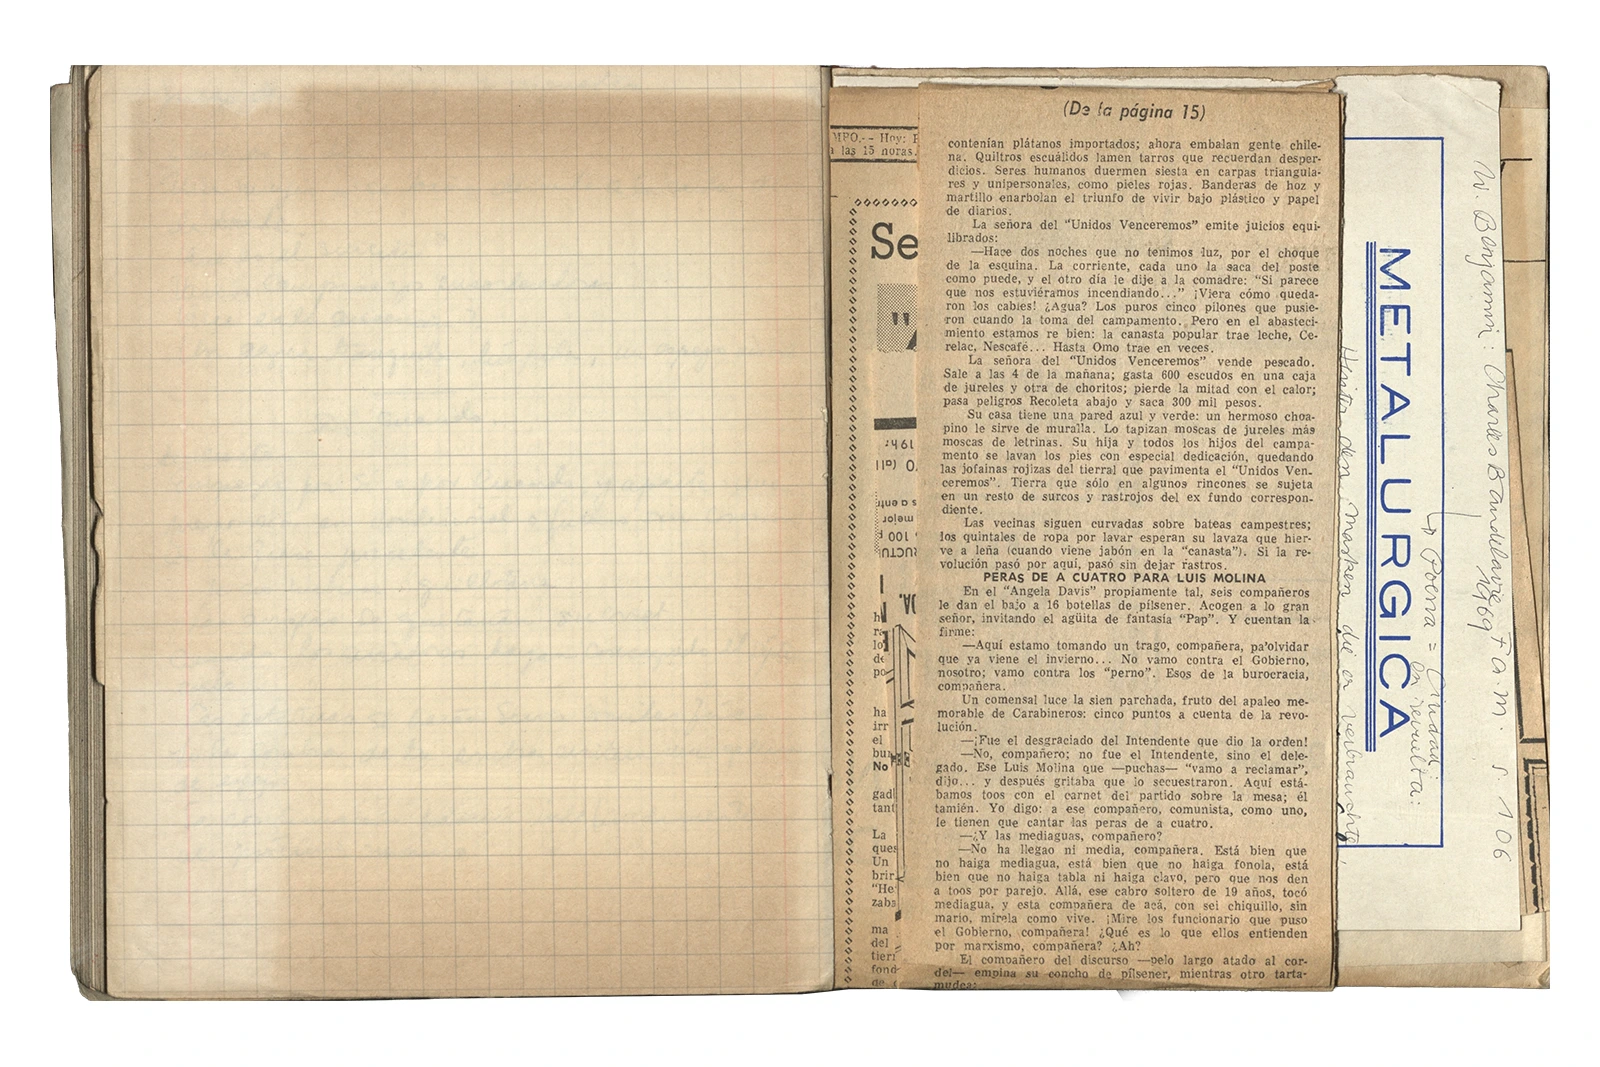 (De la página 15)
contenían plátanos importados; ahora embalan gente chile-
na. Quiltros escuálidos lamen tarros que recuerdan desper-
dicios. Seres humanos duermen siesta en carpas triangula-
res y unipersonales, como pieles rojas. Banderas de hoz y
martillo enarbolan el triunfo de vivir bajo plástico y papel
de diarios.
La señora del "Unidos Venceremos" emite juicios equi-
librados:
—Hace dos noches que no tenimos luz, por el choque
de la esquina. La corriente, cada uno la saca del poste
como puede, y el otro día le dije a la comadre: "Si parece
que nos estuviéramos incendiando..." ¡Viera cómo queda-
ron los cables! ¿Agua? Los puros cinco pilones que pusie-
ron cuando la toma del campamento. Pero en el abasteci-
miento estamos re bien: la canasta popular trae leche, Ce-
relac, Nescafé... Hasta Omo trae en veces.
La señora del "Unidos Venceremos" vende pescado.
Sale a las 4 de la mañana; gasta 600 escudos en una caja
de jureles y otra de choritos; pierde la mitad con el calor;
pasa peligros Recoleta abajo y saca 300 mil pesos.
Su casa tiene una pared azul y verde: un hermoso choa-
pino le sirve de muralla. Lo tapizan moscas de jureles más
moscas de letrinas. Su hija y todos los hijos del campa-
mento se lavan los pies con especial dedicación, quedando
las jofainas rojizas del tierral que pavimenta el "Unidos Ven-
ceremos". Tierra que sólo en algunos rincones se sujeta
en un resto de surcos y rastrojos del ex fundo correspon-
diente.
Las vecinas siguen curvadas sobre bateas campestres;
los quintales de ropa por lavar esperan su lavaza que hier-
ve a leña (cuando viene jabón en la "canasta"). Si la re-
volución pasó por aquí, pasó sin dejar rastros.
PERAS DE A CUATRO PARA LUIS MOLINA
En el "Angela Davis" propiamente tal, seis compañeros
le dan el bajo a 16 botellas de pilsener. Acogen a lo gran
señor, invitando el agüita de fantasía "Pap". Y cuentan la
firme:
—Aquí estamo tomando un trago, compañera, pa'olvidar
que ya viene el invierno... No vamo contra el Gobierno,
nosotro; vamo contra los "perno". Esos de la burocracia,
compañera.
Un comensal luce la sien parchada, fruto del apaleo me-
morable de Carabineros: cinco puntos a cuenta de la revo-
lución.
—¡Fue el desgraciado del Intendente que dio la orden!
—No, compañero; no fue el Intendente, sino el dele-
gado. Ese Luis Molina que —puchas— "vamo a reclamar",
dijo... y después gritaba que lo secuestraron. Aquí está-
bamos toos con el carnet del partido sobre la mesa; él
tamién. Yo digo: a ese compañero, comunista, como uno,
le tienen que cantar las peras de a cuatro.
—¿Y las mediaguas, compañero?
—No ha llegao ni media, compañera. Está bien que
no haiga mediagua, está bien que no haiga fonola, está
bien que no haiga tabla ni haiga clavo, pero que nos den
a toos por parejo. Allá, ese cabro soltero de 19 años, tocó
mediagua, y esta compañera de acá, con sei chiquillo, sin
mario, mírela como vive. ¡Mire los funcionario que puso
el Gobierno, compañera! ¿Qué es lo que ellos entienden
por marxismo, compañera? ¿Ah?
El compañero del discurso —pelo largo atado al cor-
del— empina su concho de pilsener, mientras otro tarta-
mudea:
Hoy:
a las 15 horas.
Se
No
La
Un
METALURGICA
W. Benjamin: Charles Baudelaire F. a. M.
1969
S. 106
Hinter den Masken die er verbrauchte,
↳ Poema = Ciudad: